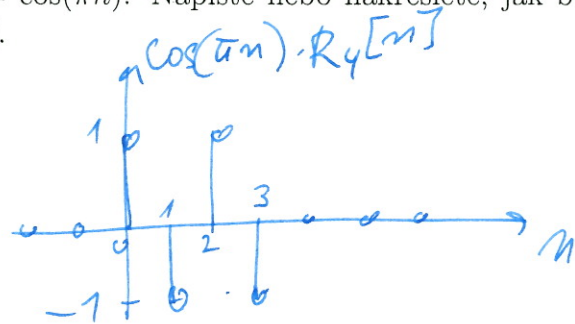 cos(πn). Napište nebo nakreslete, jak b
.
cos(πn)·R₄[n]
1
1
3
0
2
n
-1